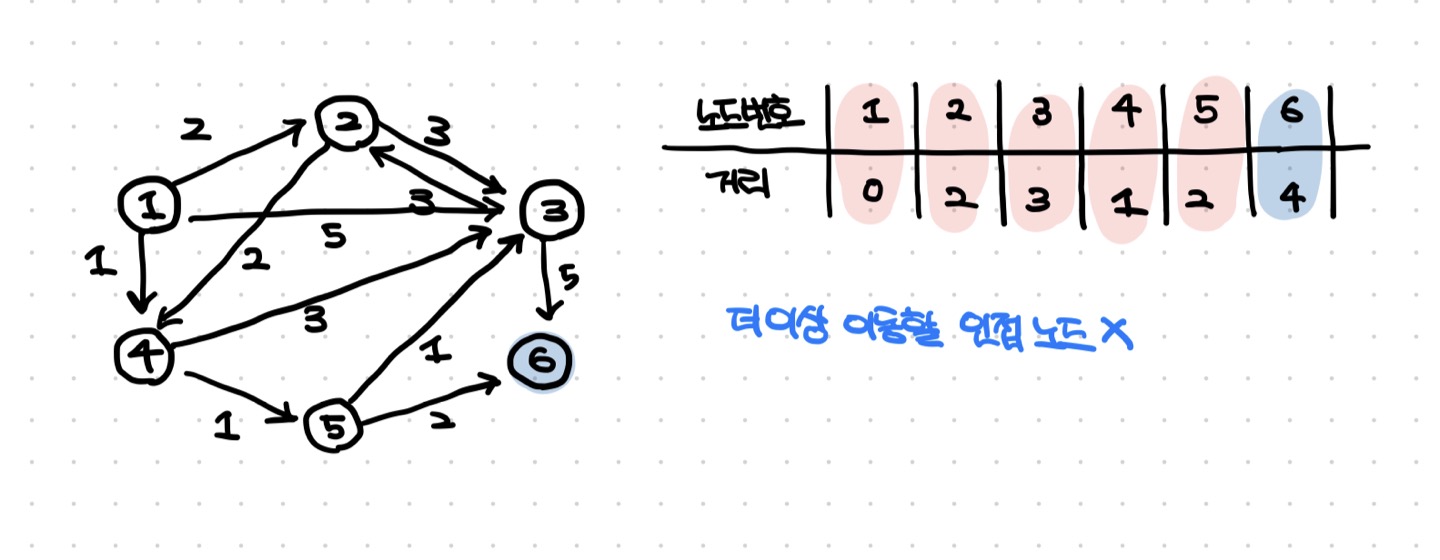 2
2
3
1
3
3
5
1
2
5
3
4
1
6
1
5
2
노드번호 1 2 3 4 5 6
거리 0 2 3 1 2 4
더이상 이동할 인접 노드 X